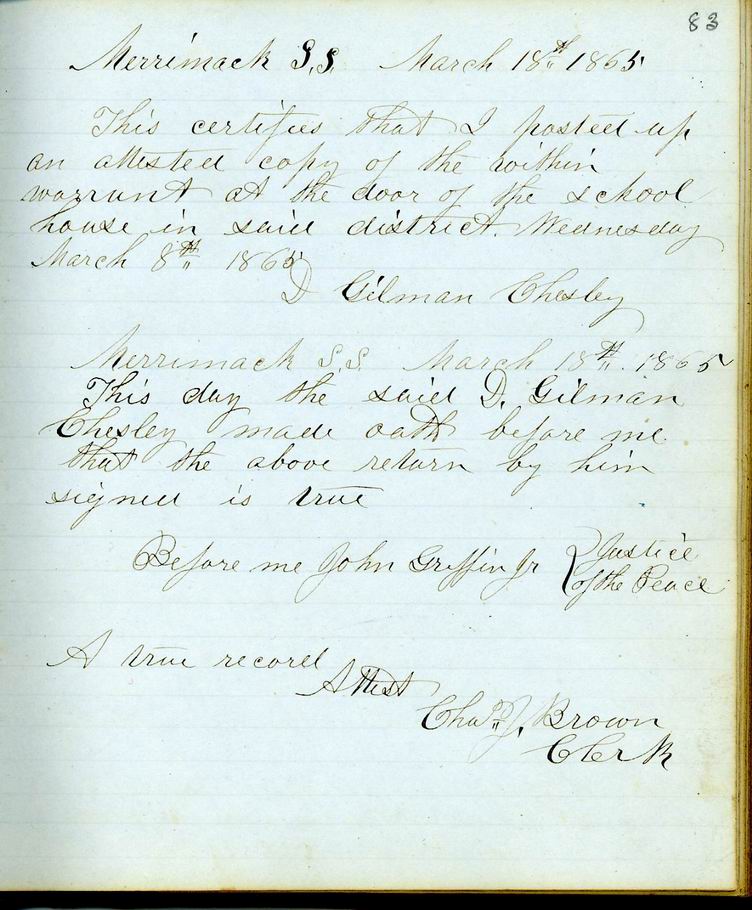 83
Merrimack S.S. March 18th 1865
This certifies that I posted up
an attested copy of the within
warrant at the door of the school
house in said district. Wednesday
March 8th 1865
D Gilman Chesley
Merrimack S.S. March 18th. 1865
This day the said D. Gilman
Chesley made oath before me
that the above return by him
signed is true
Before me John Griffin Jr } Justice
of the Peace
A true record
Attest
Chas. J. Brown
Clerk